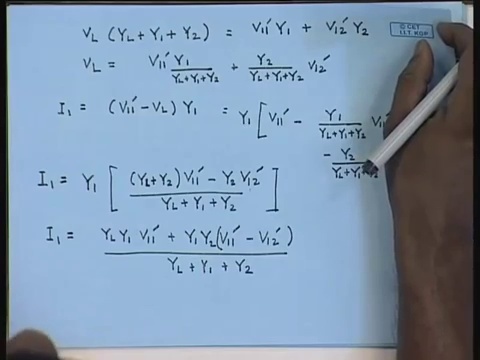 V_L (Y_L + Y_1 + Y_2) = V_11' Y_1 + V_12' Y_2
© CET
I.I.T. KGP
V_L = V_11' Y_1 / (Y_L+Y_1+Y_2) + Y_2 / (Y_L+Y_1+Y_2) V_12'
I_1 = (V_11' - V_L) Y_1 = Y_1 [ V_11' - Y_1 / (Y_L+Y_1+Y_2) V_11'
- Y_2 / (Y_L+Y_1+Y_2)
I_1 = Y_1 [ ((Y_L+Y_2) V_11' - Y_2 V_12') / (Y_L + Y_1 + Y_2) ]
I_1 = (Y_L Y_1 V_11' + Y_1 Y_2 (V_11' - V_12')) / (Y_L + Y_1 + Y_2)